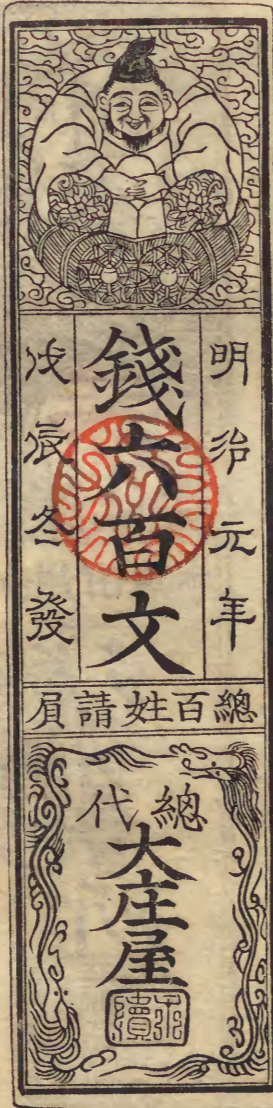 明治元年
錢六百文
戊辰冬發
總百姓請負
總代
大庄屋